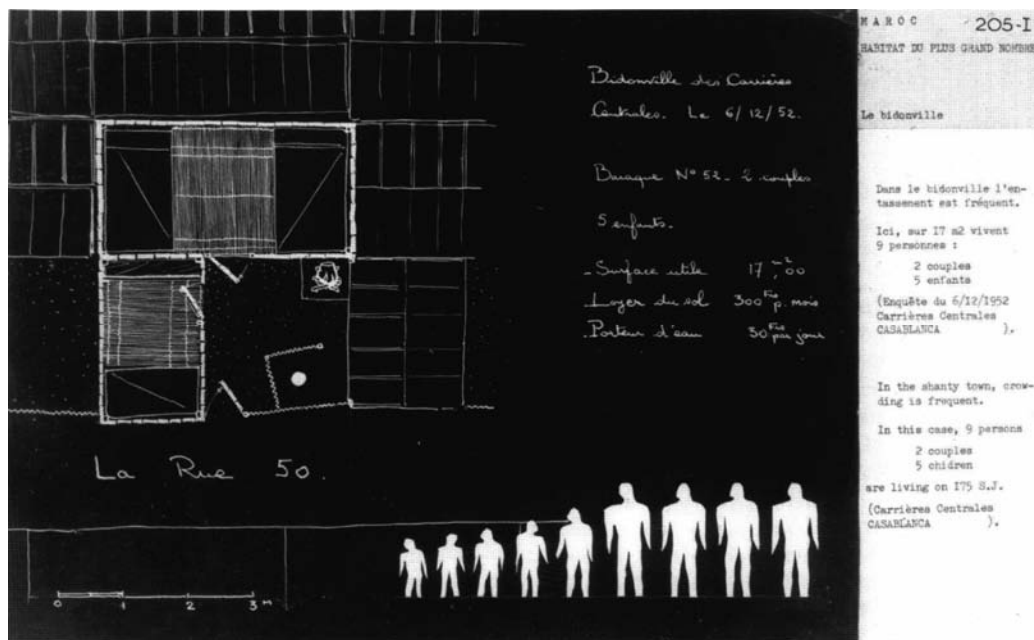 Bidonville des Carrières
Centrales. Le 6/12/52.
Baraque N° 52 - 2 couples
5 enfants.
- Surface utile 17 m²,00
- Loyer du sol 300 Frs p. mois
- Porteur d'eau 30 Frs par jour
La Rue 50.
0 1 2 3 M
MAROC 205-I
HABITAT DU PLUS GRAND NOMBRE
Le bidonville
Dans le bidonville l'en-
tassement est fréquent.
Ici, sur I7 m2 vivent
9 personnes :
2 couples
5 enfants
(Enquête du 6/12/1952
Carrières Centrales
CASABLANCA ).
In the shanty town, crow-
ding is frequent.
In this case, 9 persons
2 couples
5 chidren
are living on I75 S.J.
(Carrières Centrales
CASABLANCA ).